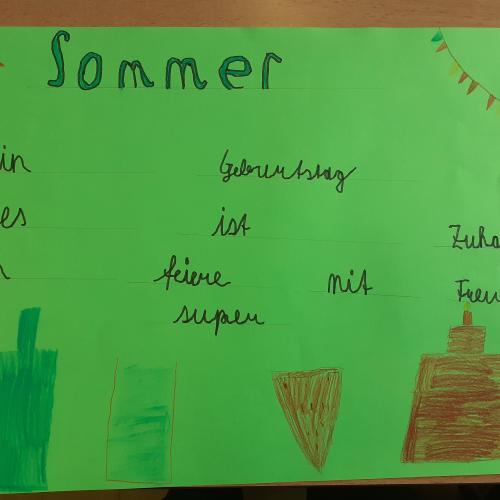 Sommer
in Geburtstag
es ist Zuha
feiere mit Freu
super